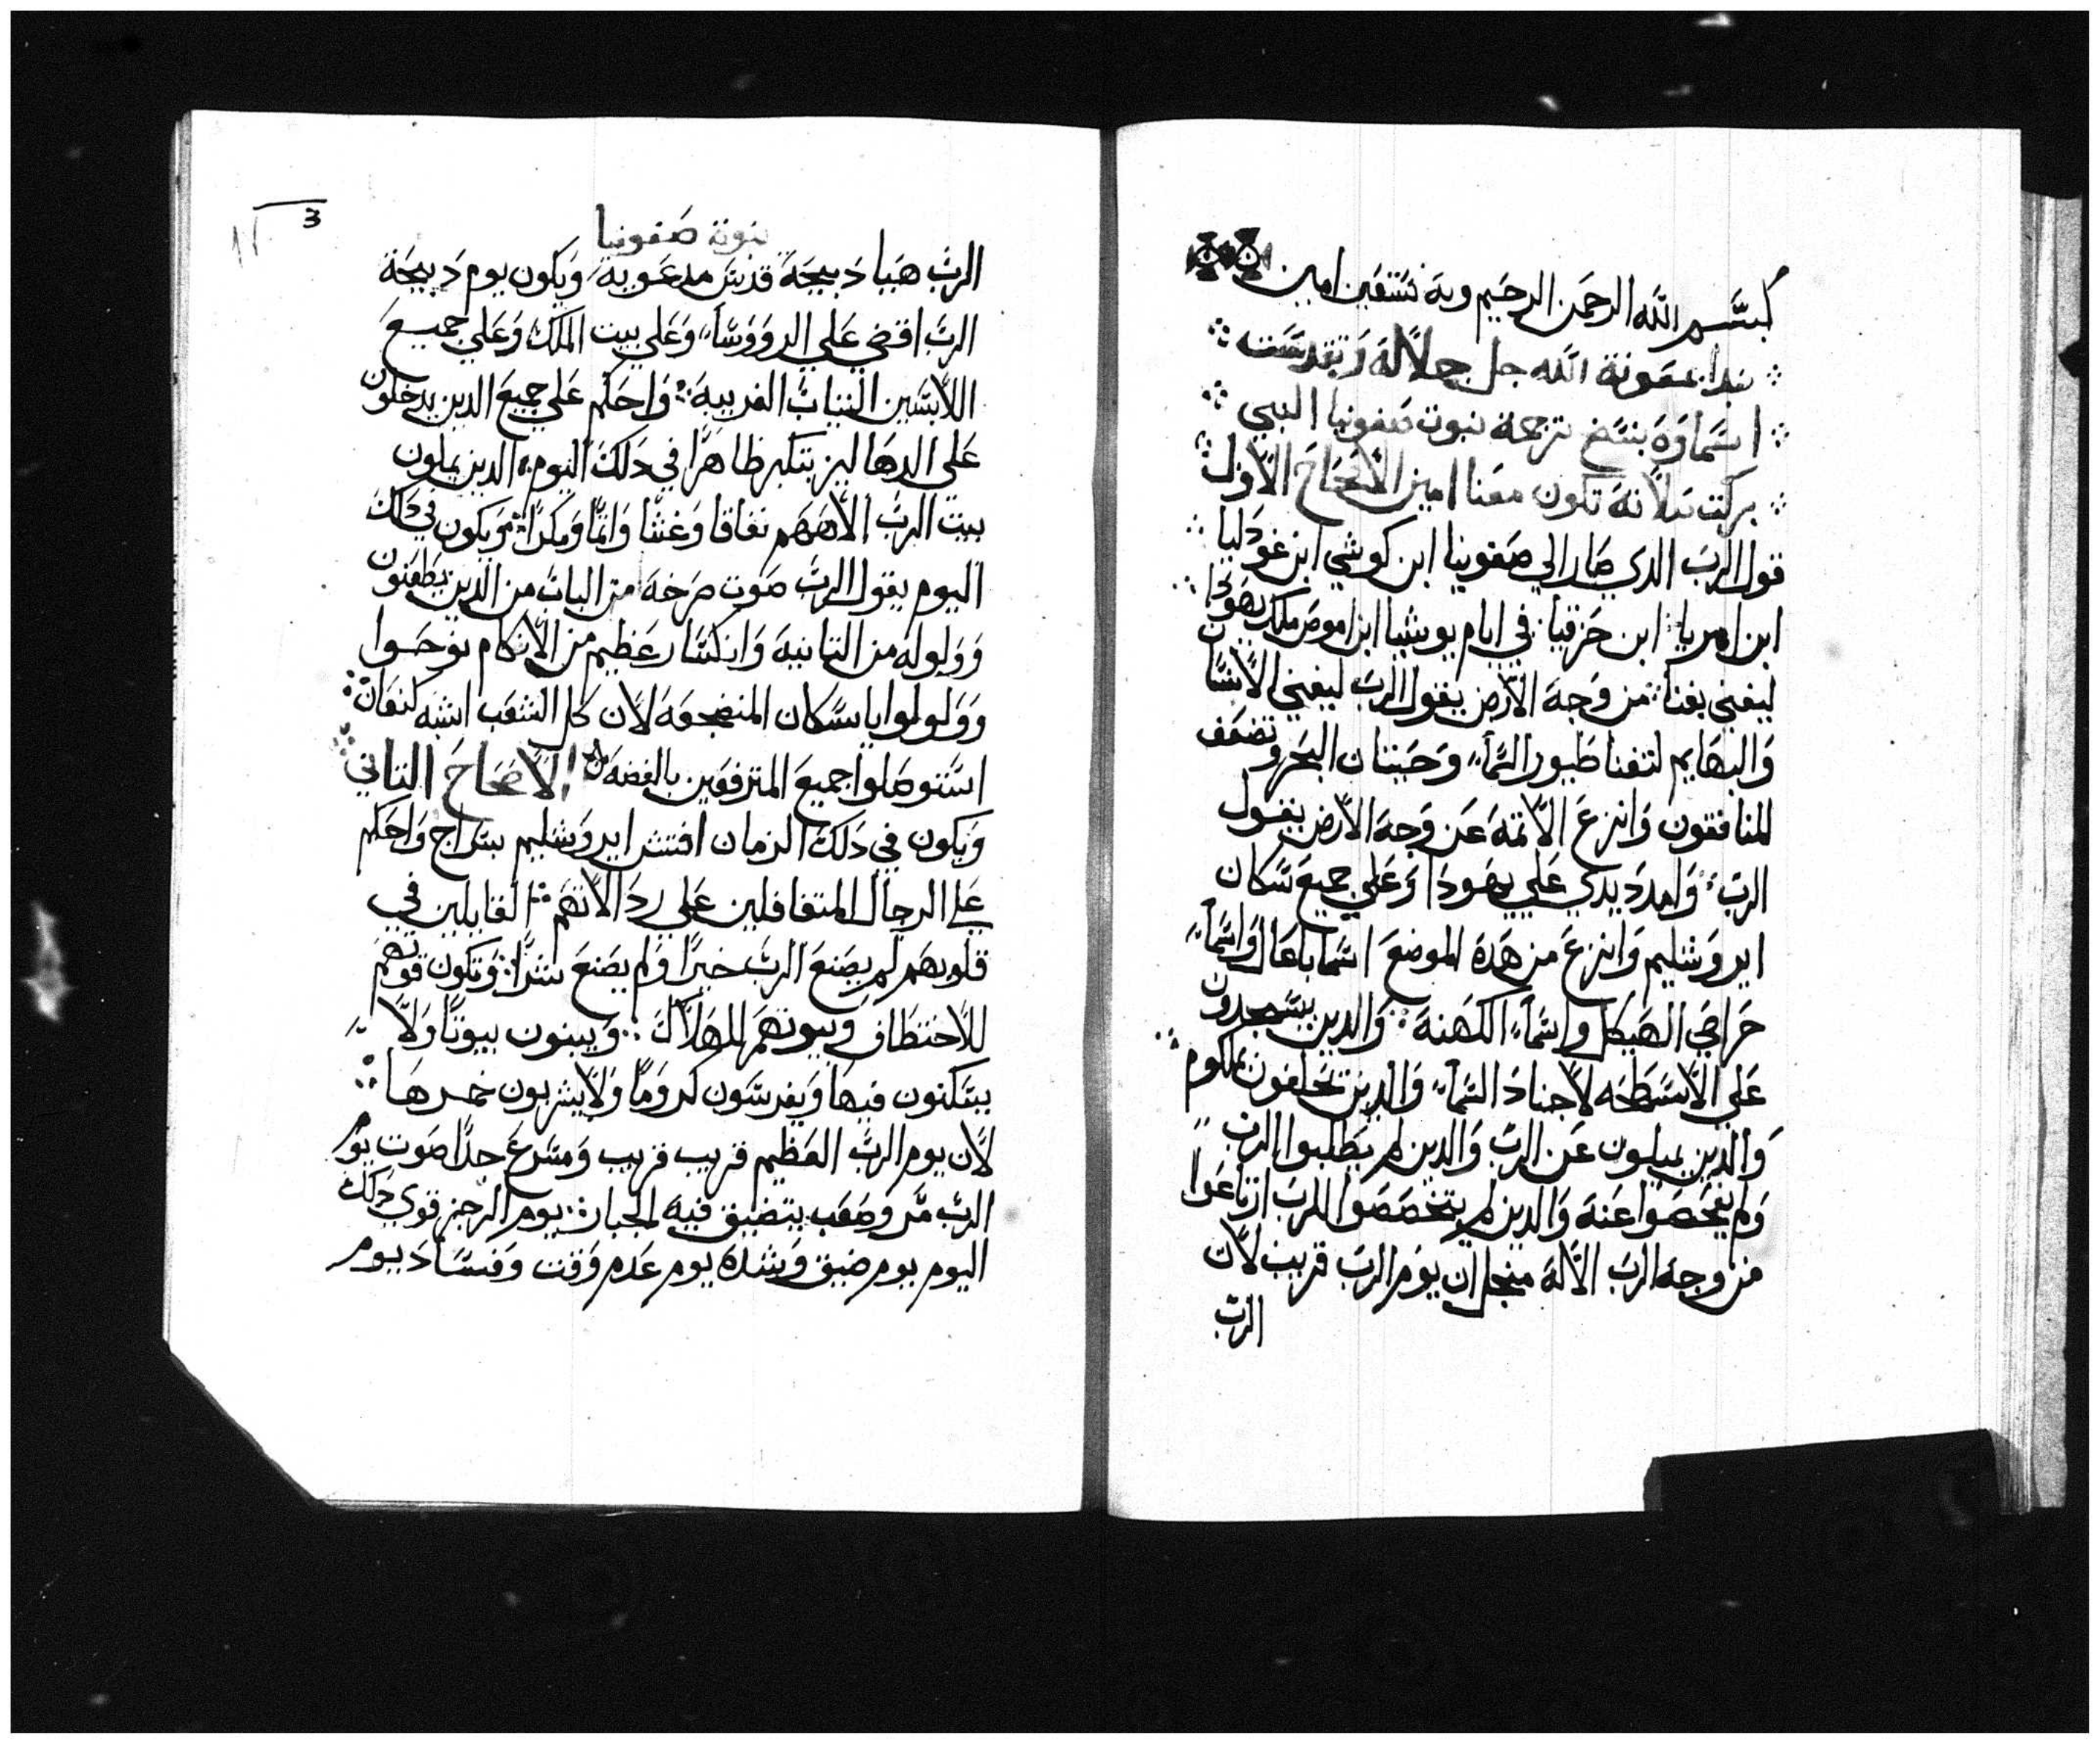 بسم الله الرحمن الرحيم وبه نستعين امين
نبدا بمعونة الله جل جلاله وتقدست
اسماوه بنسخ ترجمة نبوت صفونيا النبي
بركت صلاته تكون معنا امين الاصحاح الاول
قول الرب الدي صار الي صفونيا ابن كوشي ابن غودليا
ابن امريا ابن حزقيا في ايام يوشيا ابن اموص ملك يهودا
ليفني يفنا من وجه الارض يقول الرب ليفني الانسان
والبهايم لتفنا طيور السماء وحيتان البحر وتضعف
المنافقون وانزع الائمة عن وجه الارض يقول
الرب وامدد يدي علي يهودا وعلي جميع سكان
ايروشليم وانزع من هده الموضع اسما باعال واسماء
حرامي الهيكل واسماء الكهنة والدين يسجدون
علي الاسطحه لاجناد السماء والدين يحلفون بملكوم
والدين يميلون عن الرب والدين لم يطلبوا الرب
ولم يفحصوا عنه والدين لم يتفحصوا للرب ارتاعوا
من وجه الرب الاله منجل ان يوم الرب قريب لان
الرب
3
نبوة صفونيا
الرب هيا دبيحة قدس مدعويه ويكون يوم دبيحة
الرب اقضي علي الرووسا وعلي بيت الملك وعلي جميع
اللابسين التياب الغريبة واحكم علي جميع الدين يدخلون
علي الدهاليز بتكبر ظاهرا في دلك اليوم الدين يملون
بيت الرب الاههم نفاقا وغشا واتما ومكرا ويكون في دلك
اليوم يقول الرب صوت صرخة من الباب من الدين يطعنون
وولوله من التانية وانكسار عظيم من الاكام نوحوا
وولولوا يا سكان المنضجعة لان كل الشعب اشبه كنعان
استوصلوا جميع المترفعين بالفضه الاصحاح التاني
ويكون في دلك الزمان افتش ايروشليم بسراج واحكم
علي الرجال المتغافلين علي ردالاتهم القايلين في
قلوبهم لم يصنع الرب خيرا ولم يصنع شرا وتكون قوتهم
للاختطاف وبيوتهم للهلاك ويبنون بيوتا ولا
يسكنون فيها ويغرسون كروما ولا يشربون خمرها
لان يوم الرب العظيم قريب قريب ومسرع جدا صوت يوم
الرب مر وصعب يتضيق فيه الجبار يوم الرجز قوي دلك
اليوم يوم ضيق وشدة يوم عدم وقت وفساد يوم